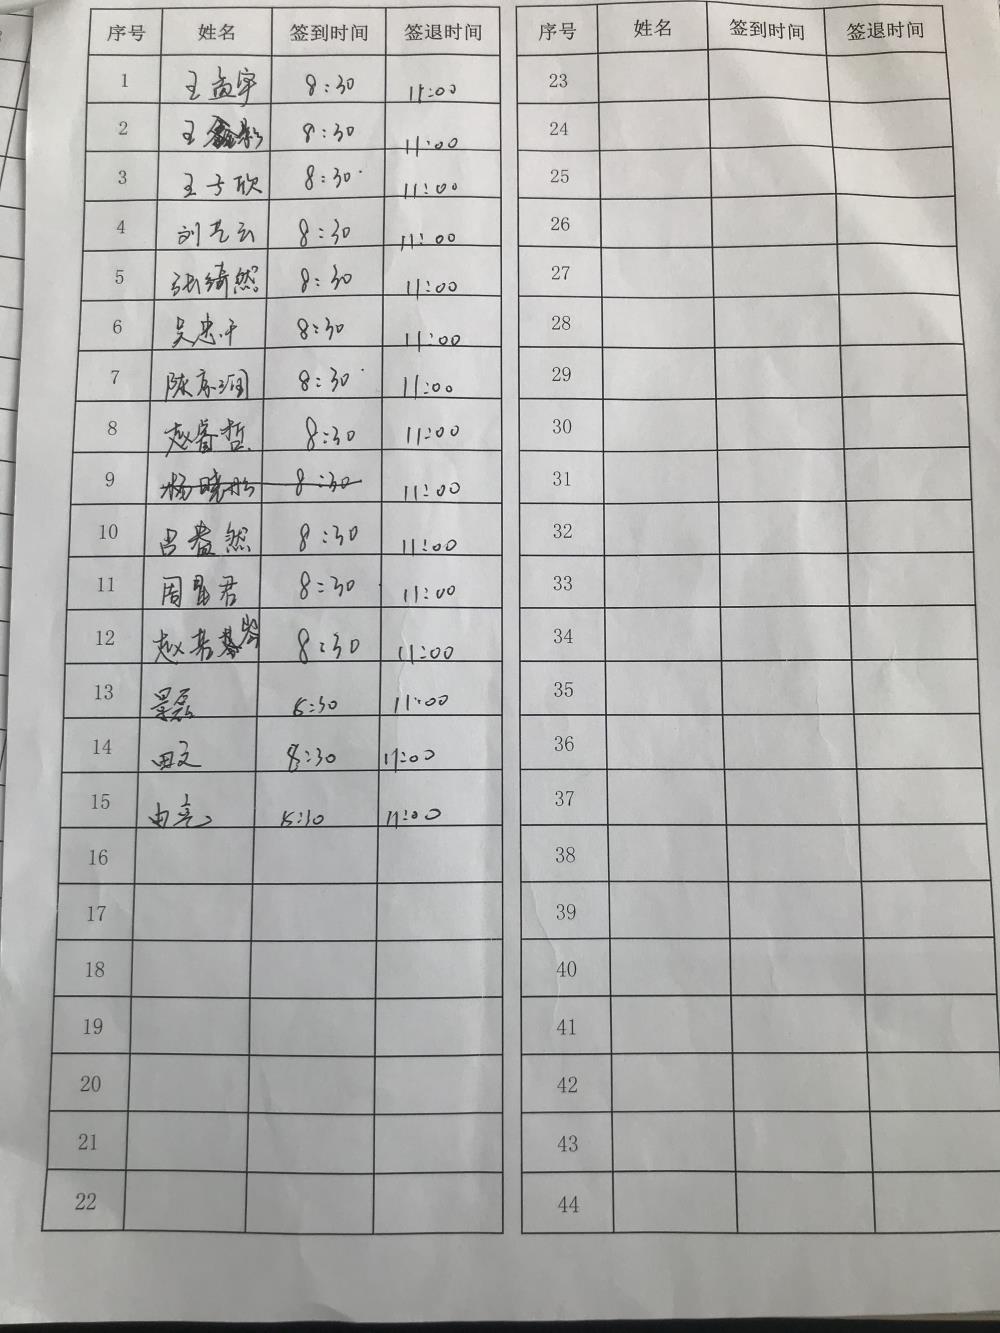 序号 姓名 签到时间 签退时间
1 王孟宇 8:30 11:00
2 王鑫彤 8:30 11:00
3 王子欣 8:30 11:00
4 刘艺云 8:30 11:00
5 张绮然 8:30 11:00
6 吴忠 8:30 11:00
7 陈 8:30 11:00
8 赵睿哲 8:30 11:00
9 杨晓彤 8:30 11:00
10 吕 然 8:30 11:00
11 周 君 8:30 11:00
12 赵 8:30 11:00
13 景磊 8:30 11:00
14 田文 8:30 11:00
15 由亮 8:30 11:00
16
17
18
19
20
21
22
序号 姓名 签到时间 签退时间
23
24
25
26
27
28
29
30
31
32
33
34
35
36
37
38
39
40
41
42
43
44